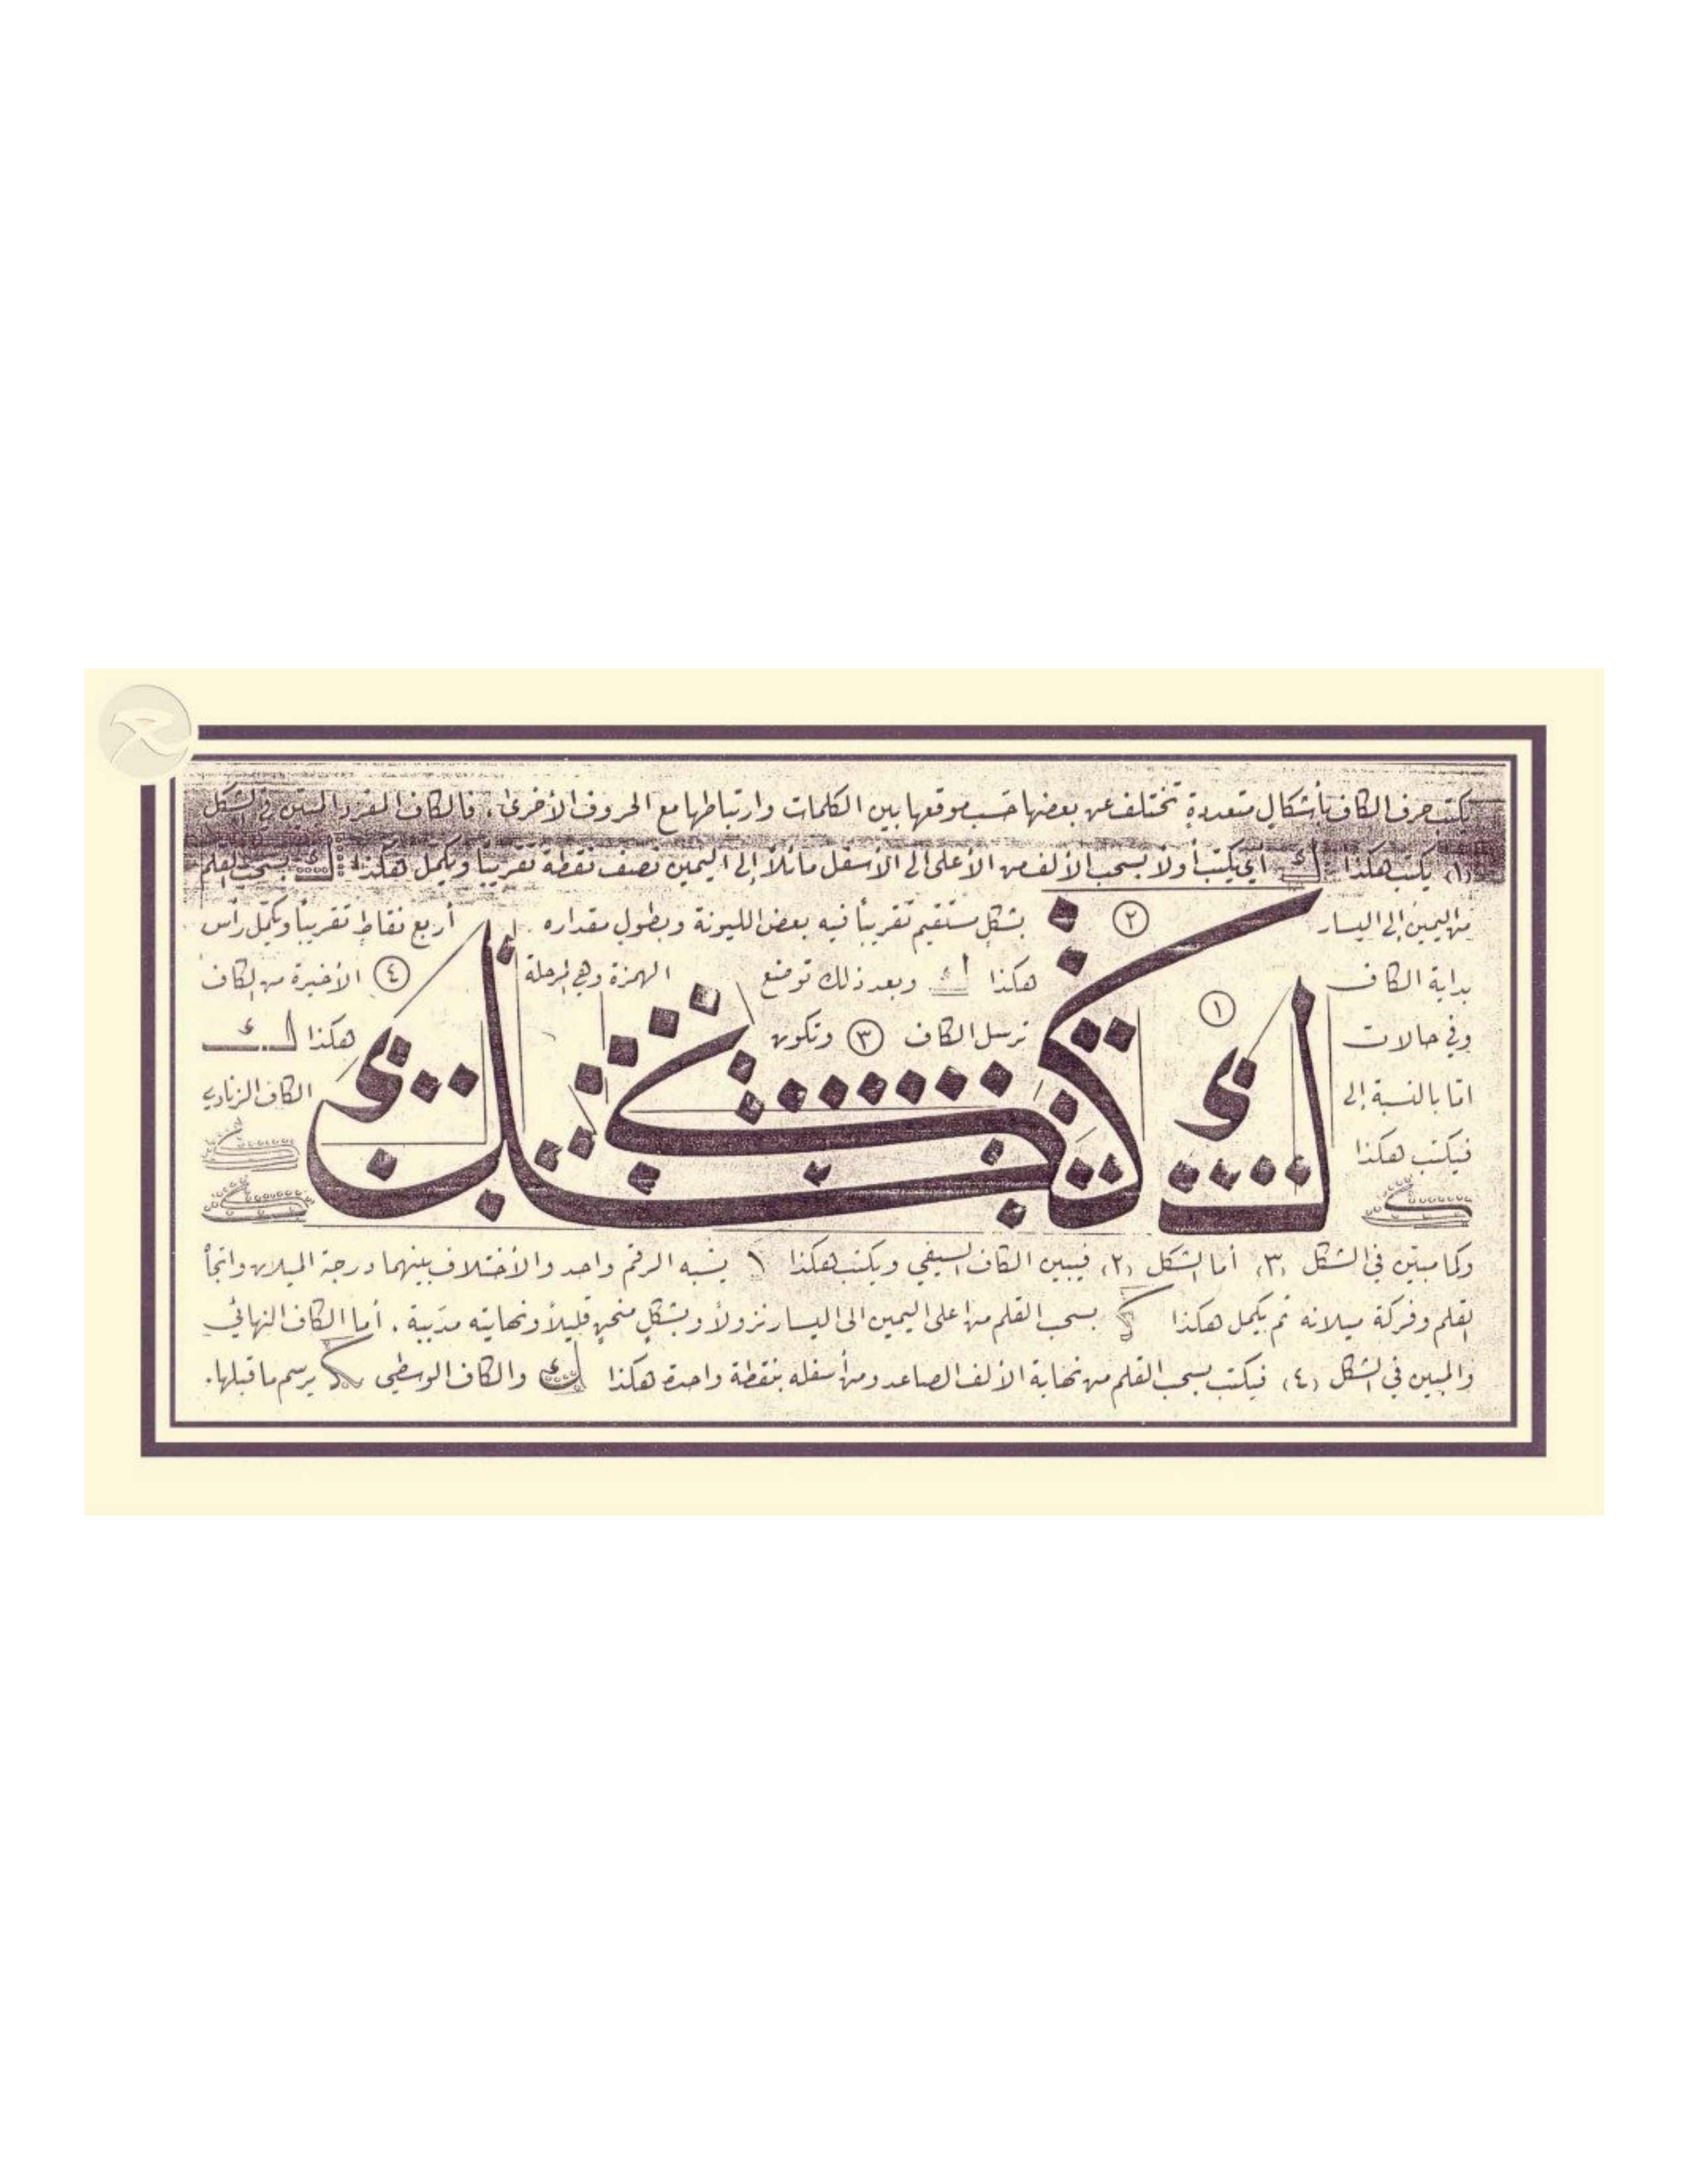 يكتب حرف الكاف بأشكال متعددة تختلف عن بعضها حسب موقعها بين الكلمات وارتباطها مع الحروف الأخرى، فالكاف المفرد المبين في الشكل
(١) يكتب هكذا ك أي يكتب أولاً بسحب الألف من الأعلى الى الأسفل مائلاً إلى اليمين نصف نقطة تقريباً ويكمل هكذا: ك بسحب القلم
من اليمين إلى اليسار ٢ بشكل مستقيم تقريباً فيه بعض الليونة وبطول مقداره أربع نقاط تقريباً ويكمل رأس
بداية الكاف هكذا ك وبعد ذلك توضع الهمزة وهي المرحلة ٤ الأخيرة من الكاف
وفي حالات ١ ترسل الكاف ٣ وتكون هكذا ك
اما بالنسبة إلى الكاف الزنادي
فيكتب هكذا
ك
وكما مبين في الشكل (٣) أما الشكل (٢) فيبين الكاف السيفي ويكتب هكذا \ يشبه الرقم واحد والأختلاف بينهما درجة الميلان واتجا
القلم وفركة ميلانه ثم يكمل هكذا ك بسحب القلم من اعلى اليمين الى اليسار نزولاً وبشكل منحن قليلاً ونهايته مدببة . أما الكاف النهائي
والمبين في الشكل (٤) فيكتب بسحب القلم من نهاية الألف الصاعد ومن أسفله بنقطة واحدة هكذا ك والكاف الوسطي ك يرسم ما قبلها.